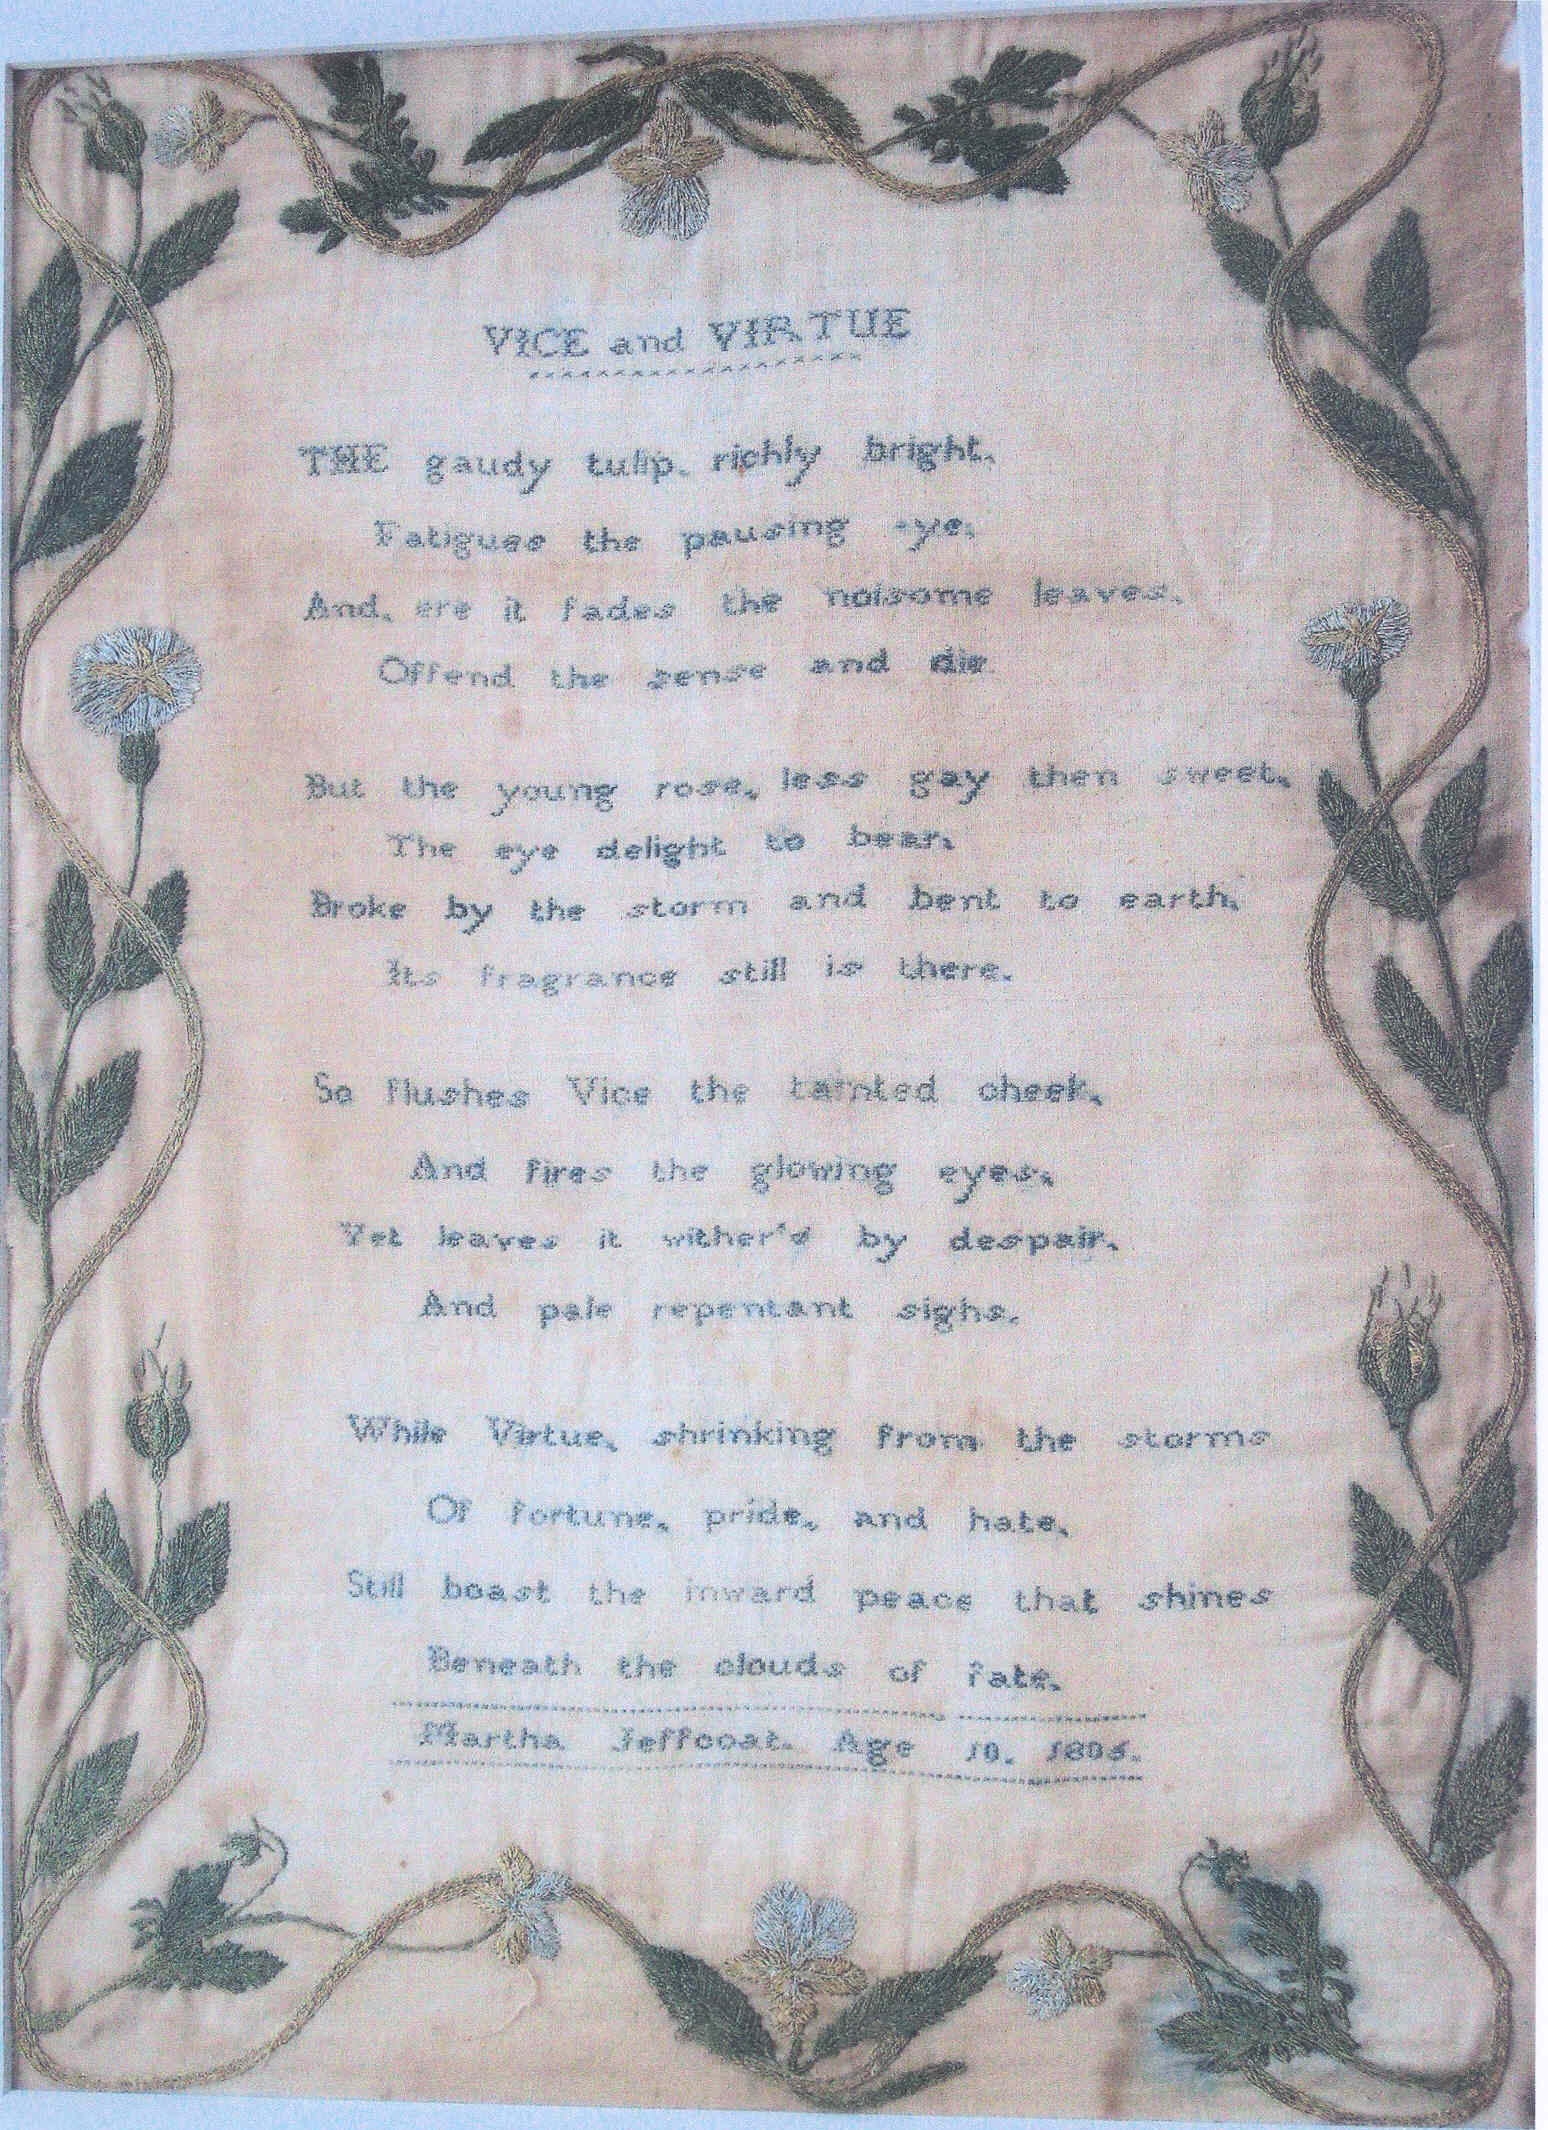 VICE and VIRTUE
THE gaudy tulip, richly bright,
Fatigues the pausing eye,
And, ere it fades the noisome leaves,
Offend the sense and die
But the young rose, less gay then sweet,
The eye delight to bear,
Broke by the storm and bent to earth,
Its fragrance still is there.
So flushes Vice the tainted cheek,
And fires the glowing eyes,
Yet leaves it wither'd by despair,
And pale repentant sighs.
While Virtue, shrinking from the storms
Of fortune, pride, and hate,
Still boast the inward peace that shines
Beneath the clouds of fate.
Martha Jeffcoat. Age 10. 1806.